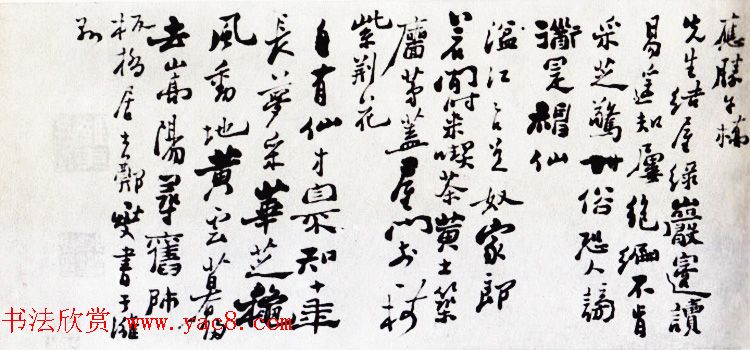 應勝午橋
先生結屋綠巖邊讀
易遙知屢絕編不肯
采芝驚世俗恐人謗
道是神仙
湓江江口是奴家郎
若閒時來喫茶黃土築
牆茅蓋屋門前一樹
紫荊花
自有仙才自不知十年
長夢采華芝秋
風動地黃雲暮歸
去嵩陽尋舊師
板橋居士鄭燮書于濰
縣
书法欣赏 www.yac8.com